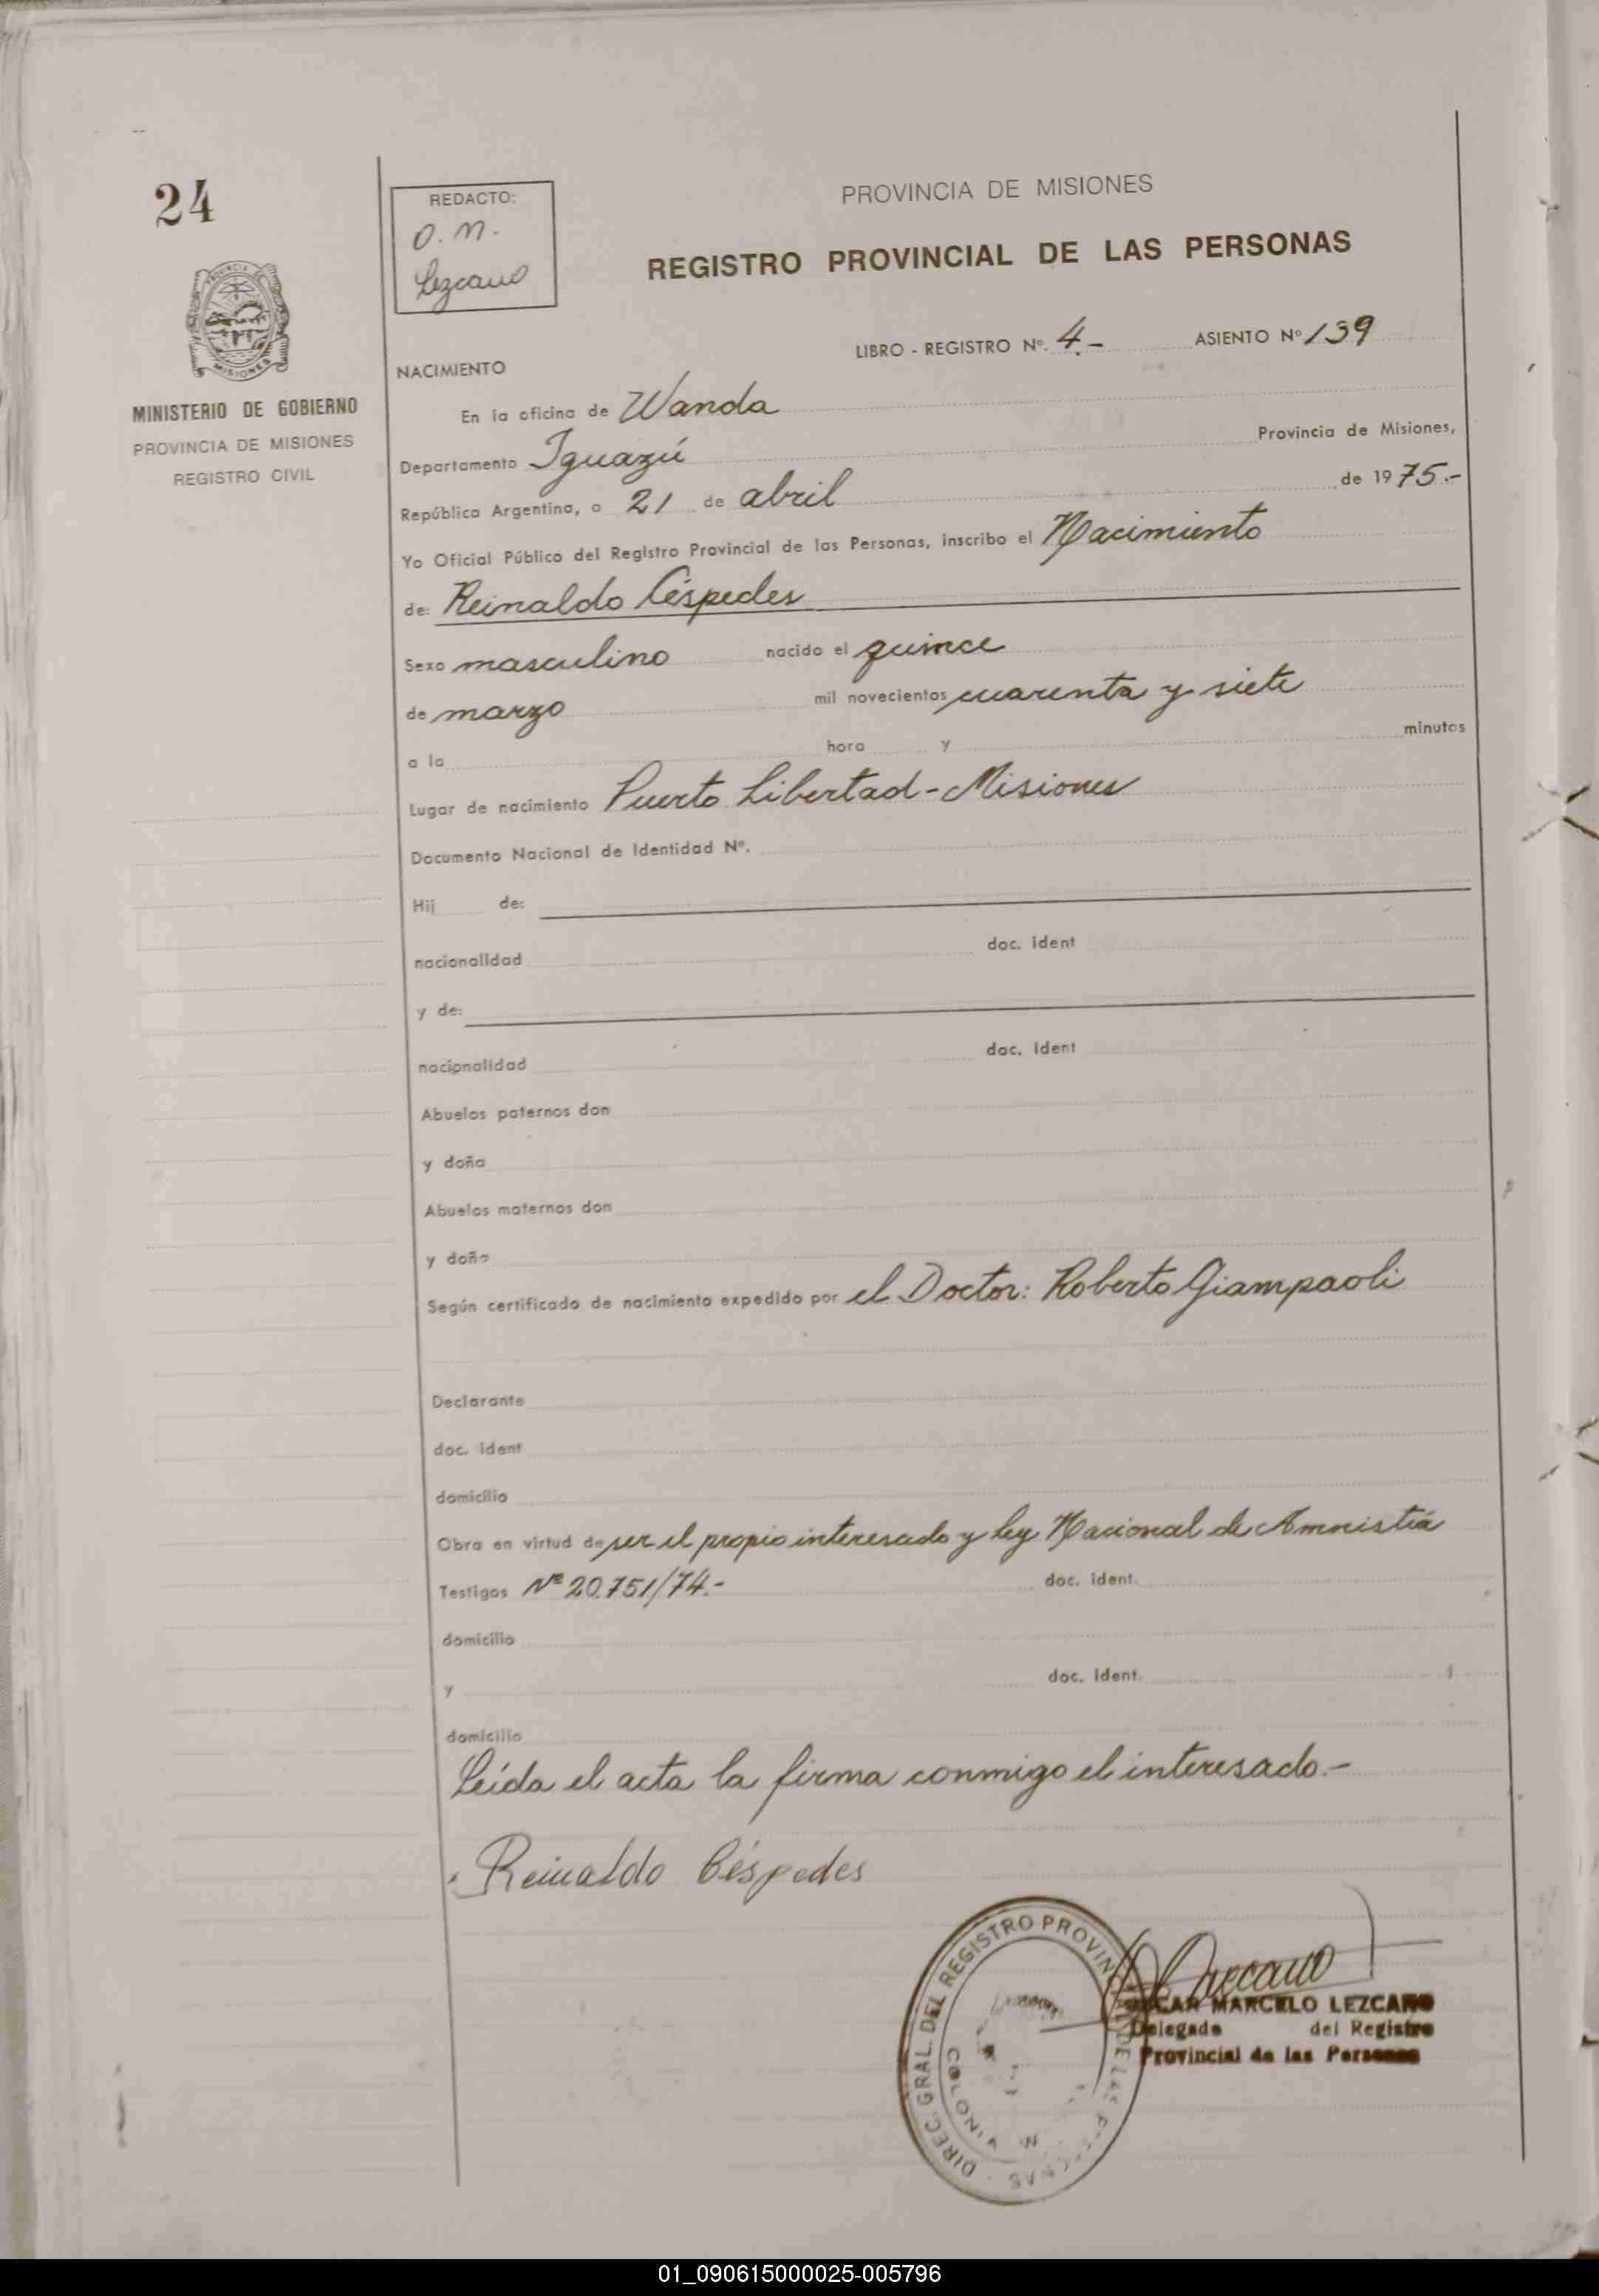 24
REDACTO:
O. M.
Lezcano
PROVINCIA DE MISIONES
REGISTRO PROVINCIAL DE LAS PERSONAS
PROVINCIA DE
MISIONES
MINISTERIO DE GOBIERNO
PROVINCIA DE MISIONES
REGISTRO CIVIL
LIBRO - REGISTRO Nº. 4.- ASIENTO Nº 139
NACIMIENTO
En la oficina de Wanda
Departamento Iguazú Provincia de Misiones,
República Argentina, a 21 de abril de 1975.-
Yo Oficial Público del Registro Provincial de las Personas, inscribo el Nacimiento
de: Reinaldo Céspedes
Sexo masculino nacido el quince
de marzo mil novecientos cuarenta y siete
a la hora y minutos
Lugar de nacimiento Puerto Libertad - Misiones
Documento Nacional de Identidad Nº.
Hij de:
nacionalidad doc. ident
y de:
nacionalidad doc. ident
Abuelos paternos don
y doña
Abuelos maternos don
y doña
Según certificado de nacimiento expedido por el Doctor: Roberto Giampaoli
Declarante
doc. ident
domicilio
Obra en virtud de ser el propio interesado y ley Nacional de Amnistía
Testigos Nº 20.751/74.- doc. ident.
domicilio
y doc. ident.
domicilio
Leída el acta la firma conmigo el interesado.-
Reinaldo Céspedes
DIREC. GRAL. DEL REGISTRO PROVIN DE LAS
COLONIA W
MARCELO LEZCANO
Delegado del Registro
Provincial de las Personas
01_090615000025-005796